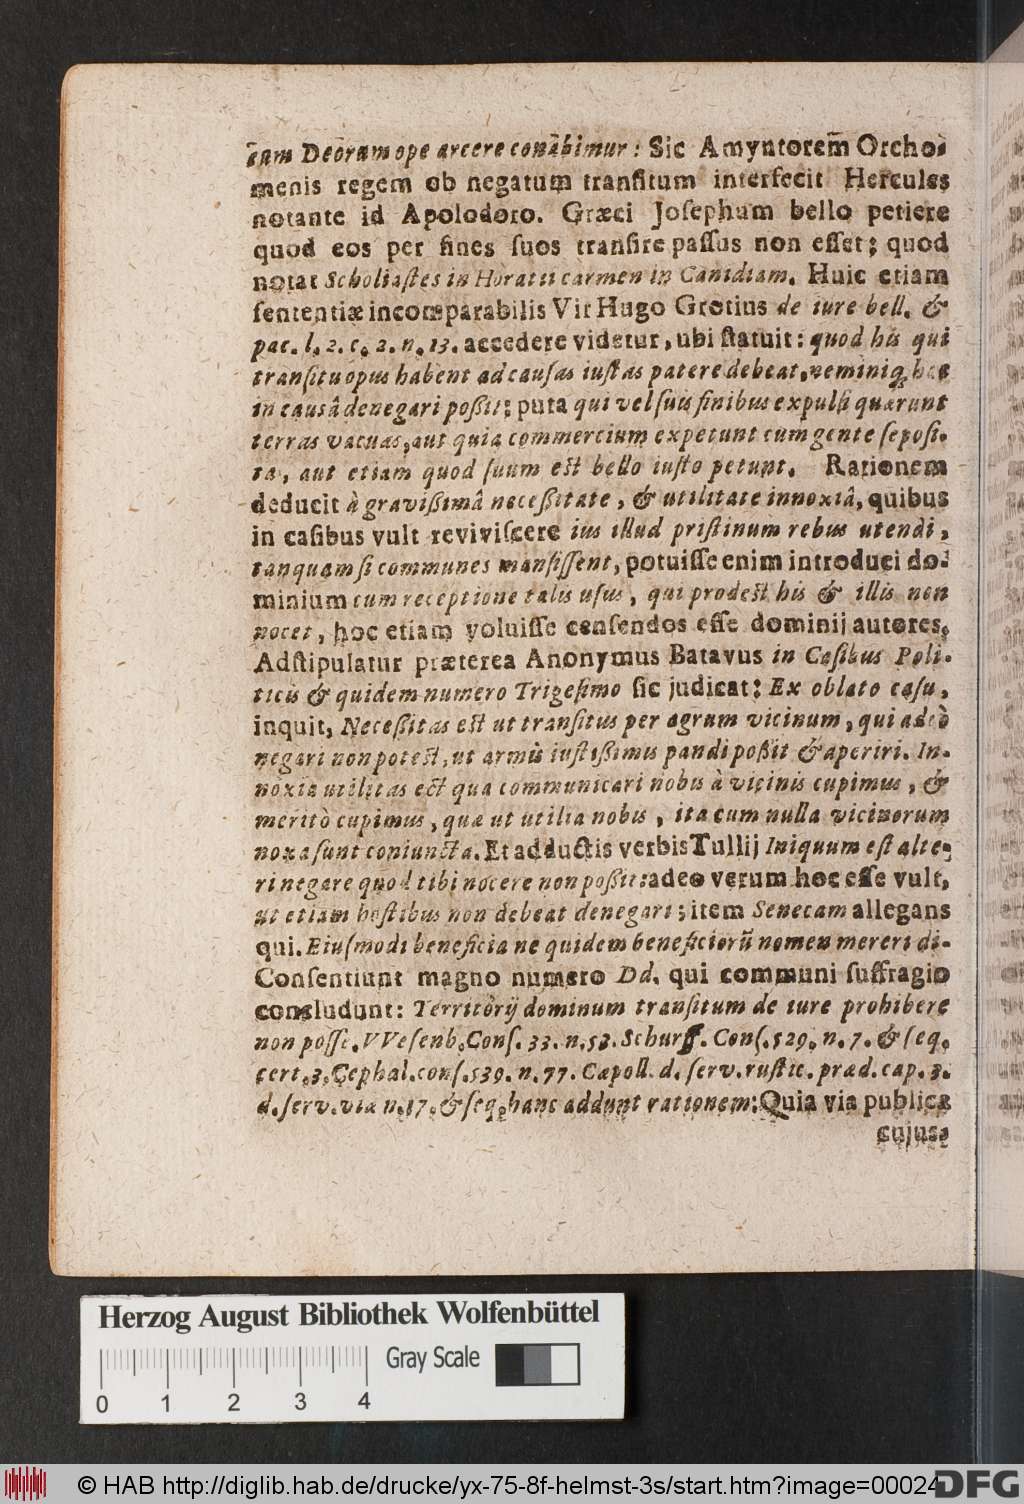 eam Deoram ope arcere conabimur: Sic Amyntorem̃ Orcho-
menis regem ob negatum tranſitum interfecit Hercules
notante id Apolodoro. Græci Joſephum bello petiere
quod eos per fines ſuos tranſire paſſus non eſſet; quod
notat Scholiaſtes in Horatii carmen in Canidiam. Huic etiam
ſententiæ incomparabilis Vir Hugo Grotius de iure bell. &
pac. l. 2. c. 2. n. 13. accedere videtur, ubi ſtatuit: quod his qui
tranſitu opus habent ad cauſas iuſtas patere debeat, neminiq; hoc
in causâ denegari poßit; puta qui vel ſuis finibus expulſi quærunt
terras vacuas, aut quia commercium expetunt cum gente ſepoſi-
ta, aut etiam quod ſuum est bello iuſto petunt. Rationem
deducit à gravißimâ neceßitate, & utilitate innoxiâ, quibus
in caſibus vult reviviſcere ius illud priſtinum rebus utendi,
tanquam ſi communes manſiſſent, potuiſſe enim introduci do-
minium cum receptione talis uſus, qui prodest his & illis non
nocet, hoc etiam voluiſſe cenſendos eſſe dominij autores.
Adſtipulatur præterea Anonymus Batavus in Caſibus Poli-
ticis & quidem numero Trigeſimo ſic judicat: Ex oblato caſu,
inquit, Neceßitas est ut tranſitus per agrum vicinum, qui adeò
negari non potest, ut armis iuſtißimis pandi poßit & aperiri. In-
noxia utilitas est qua communicari nobis à vicinis cupimus, &
meritò cupimus, quæ ut utilia nobis, ita cum nulla vicinorum
noxa ſunt coniuncta. Et adductis verbis Tullij Iniquum eſt alte-
ri negare quod tibi nocere non poßit: adeo verum hoc eſſe vult,
ut etiam hoſtibus non debeat denegari; item Senecam allegans
qui. Eiuſmodi beneficia ne quidem beneficiorũ nomen mereri di-
Conſentiunt magno numero Dd. qui communi ſuffragio
concludunt: Territorij dominum tranſitum de iure prohibere
non poſſe. VVeſenb. Conſ. 33. n. 58. Schurff. Conſ. 529. n. 7. & ſeq.
cert. 3. Cephal. conſ. 539. n. 77. Cæpoll. d. ſerv. ruſtic. præd. cap. 3.
d. ſerv. viæ n. 17. & ſeq. hanc addunt rationem: Quia via publica
cujus-
Herzog August Bibliothek Wolfenbüttel
Gray Scale
0 1 2 3 4
© HAB http://diglib.hab.de/drucke/yx-75-8f-helmst-3s/start.htm?image=00024
DFG